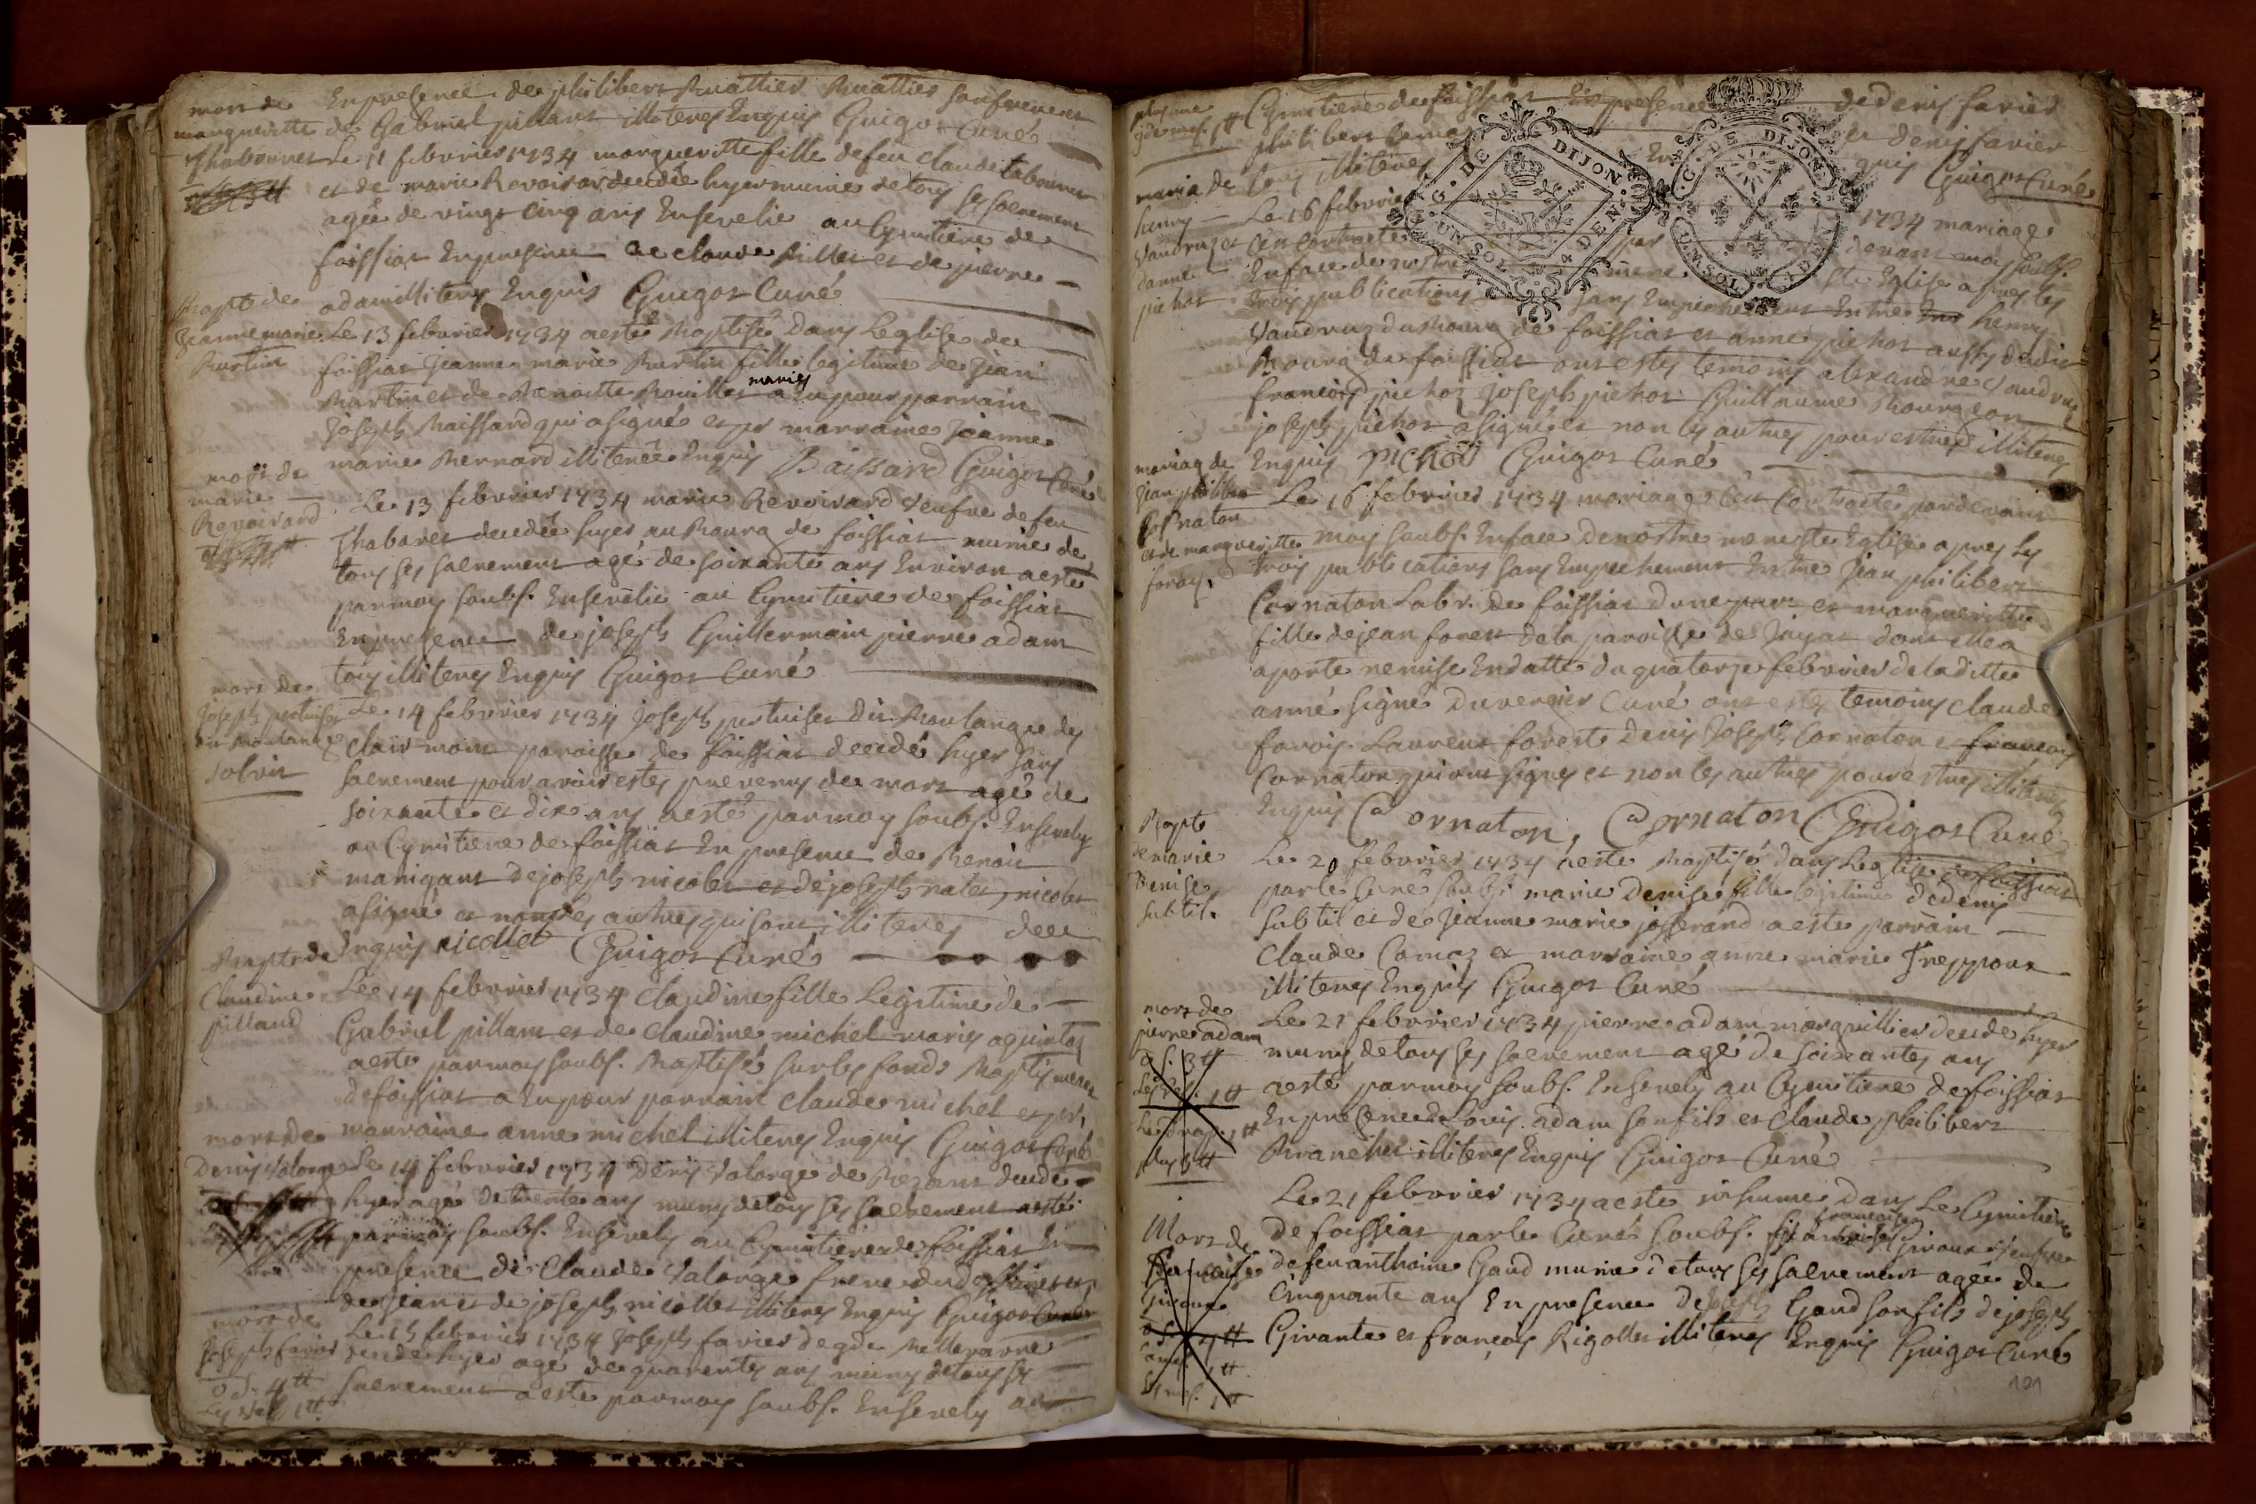 En presence de philibert Muattier Muattier son frere et
mort de
margueritte
Thabouret
de Gabriel pillant illiteres Enquis Guigot Curé
Le 11 febvrier 1734 margueritte fille de feu claude tabouret
et de marie Revoirard decedée hyer munie de tous ses sacrement
agée de vingt cinq ans Ensevelie au Cymitiere de
foissiat En presence de claude Millet et de pierre
adam illiteres Enquis Guigot Curé
Bapte de
Jeanne marie
Burtin
Le 13 febvrier 1734 a esté Baptisé Dans Leglise de
foissiat Jeanne marie Burtin fille legitime de Jean
Burtin et de Benoitte Bouillet maries a Eu pour parrain
Joseph Baissard qui a signé et pr marraine Jeanne
marie Bernard illiterée Enquis Baissard Guigot Curé
mort de
marie
Revoirard
Le 13 febvrier 1734 marie Revoirard veufve de feu
Thabouret decedée hyer au Bourg de foissiat munie de
tous ses sacrement agé de soixante ans Environ a esté
par moy soubs. Ensevelie au Cymitiere de foissiat
En presence de joseph Guillermain pierre adam
tous illiteres Enquis Guigot Curé
mort de
Joseph pertuiset
dit Boulangé
solvit
Le 14 febvrier 1734 Joseph pertuiset Dit Boulangé des
clair mont paroisse de foissiat decedé hyer sans
sacrement pour avoir estes prevenus de mort agé de
soixante et dix ans a esté par moy soubs. Ensevely
au Cymitiere de foissiat En presence de Benoit
manigant de joseph nicolet et de joseph natet, nicolet
a signé et non les autres qui sont illiteres de ce
Enquis nicollet Guigot Curé
Bapte de
Claudine
pilland
Le 14 febvrier 1734 Claudine fille Legitime de
Gabriel pillant et de claudine michel maries a quintas
a esté par moy soubs. Baptisé sur les fonds Baptismeaux
de foissiat a Eu pour parrain claude michel et pr
marraine anne michel illiteres Enquis Guigot Curé
mort de
Denis Valorge
Le 14 febvrier 1734 Denis Valorge de Bezant decedé
hyer agé de trente ans muny de tous ses sacrement a esté
par moy soubs. Ensevely au Cymitiere de foissiat En
presence de Claude Valorge frere du deffunt et
de Jean et de joseph nicollet illiteres Enquis Guigot Curé
mort de
Joseph favier
4 ₶
1 ₶
Le 15 febvrier 1734 Joseph favier
decedé hyer agé de quarentes ans muny de tous ses
sacrement a esté par moy soubs. Ensevely au
1 ₶
Cymitiere de foissiat En presence de denis favier
philibert et denis favier
tous illiteres Enquis Guigot Curé
mariage de
henry
Vaudruz et
danne
pichot
Le 16 febvrier 1734 mariage
a Eté Contracté par devant moy soubs.
En face de nostre mere ste Eglise apres les
trois publications sans Empechement Entre henry
Vaudruz du Bourg de foissiat et anne pichot aussy dudit
Bourg de foissiat ont estes temoins alexandre Vaudruz
francois pichot Joseph pichot Guillaume Bourgeon
joseph pichot a signé et non les autres pour estres illiteres
Enquis PICHOT Guigot Curé
mariag de
Jean philibert
Cornaton
et de margueritte
forois
Le 16 febvrier 1734 mariage a Eté Contracté par devant
moy soubs. En face de nostre mere ste Eglise apres les
trois publications sans Empechement Entre Jean philibert
Cornaton Labr. de foissiat dune part et margueritte
fille de jean forest de la paroisse de Jayat dont Elle a
aporté remise En datte du quatorze febvrier de la ditte
anné signé Duvernier Curé ont estes temoins claude
forois Laurent forest denis Joseph Cornaton et francois
Cornaton qui ont signes et non les autres pour estres illiteres
Enquis Cornaton, Cornaton Guigot Curé
Bapte
de marie
Denise
subtil
Le 20 febvrier 1734 a esté Baptisé dans Leglise de foissiat
par le Curé soubs. marie Denise fille legitime de denis
subtil et de Jeanne marie josserand a esté parrain
Claude Comaz et marraine anne marie Treppoux
illiteres Enquis Guigot Curé
mort de
pierre adam
3 ₶
1 ₶
1 ₶
Le 21 febvrier 1734 pierre adam marguillier decedé hyer
muny de tous ses sacrement agé de soixantes ans
a esté par moy soubs. Ensevely au Cymitiere de foissiat
En presence de Louis adam son fils et Claude philibert
Branchet illiteres Enquis Guigot Curé
Mort de
francoise
Giroux
1 ₶
1 ₶
Le 21 febvrier 1734 a esté inhumé dans Le Cymitiere
de foissiat par le Curé soubs. francoise Giroux veufve
de feu anthoine Gaud munie de tous ses sacrement agée de
Cinquante ans En presence de joseph Gaud son fils de joseph
Girante et françois Rigollet illiteres Enquis Guigot Curé
G. DE DIJON
UN SOL 4 DEN.
G. DE DIJON
UN SOL 4 DEN.
121